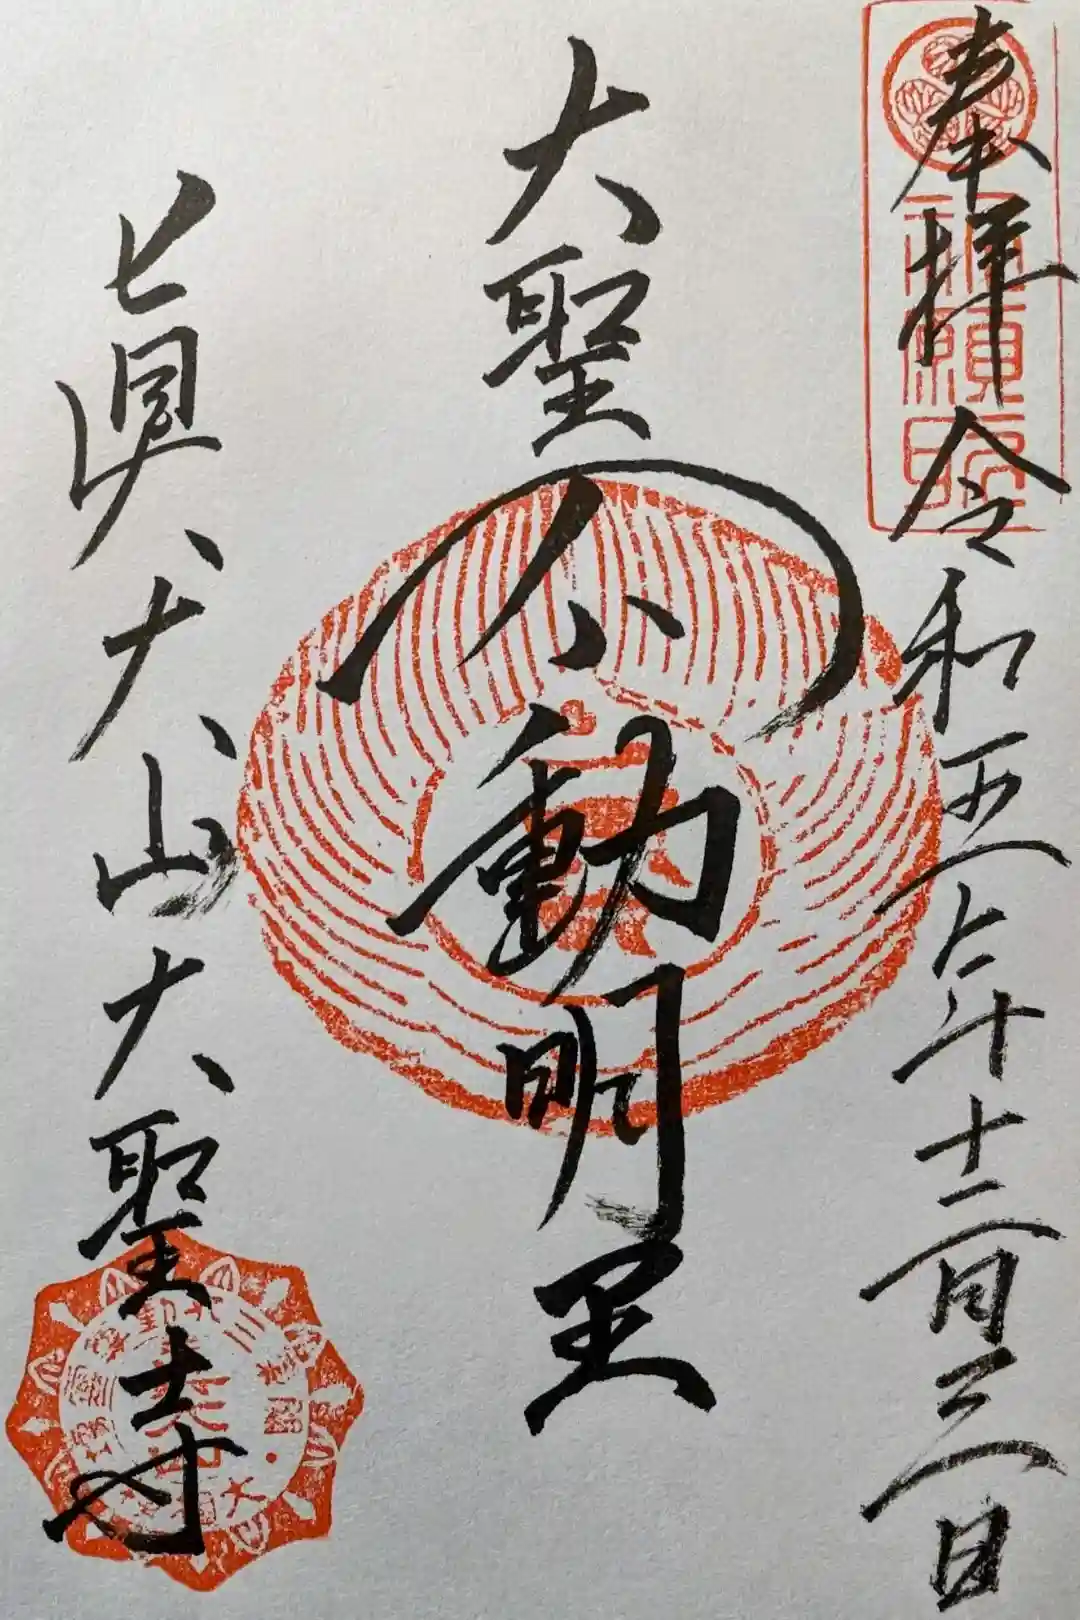 奉拝 令和五年十二月三日
祈願所
大聖不動明王
眞大山大聖寺